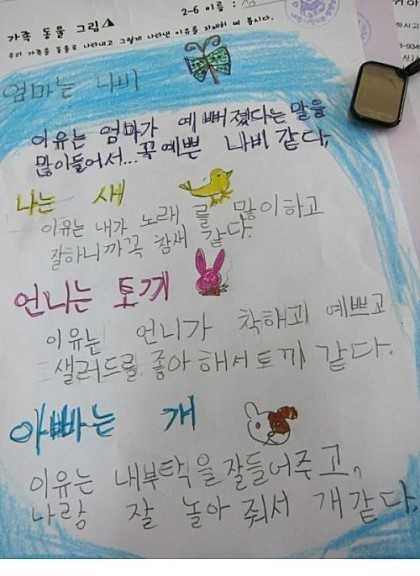 가족 동물 그림
2-6 이름 :
우리 가족을 동물로 나타내고 그렇게 나타낸 이유를 자세히 써 봅시다.
엄마는 나비
이유는 엄마가 예뻐졌다는 말을
많이들어서... 꼭예쁜 나비 같다.
나는 새
이유는 내가 노래를 많이하고
잘하니까꼭 참새 같다.
언니는 토끼
이유는 언니가 착해고 예쁘고
샐러드를 좋아해서토끼 같다.
아빠는 개
이유는 내부탁을잘들어주고,
나랑 잘 놀아줘서 개같다.